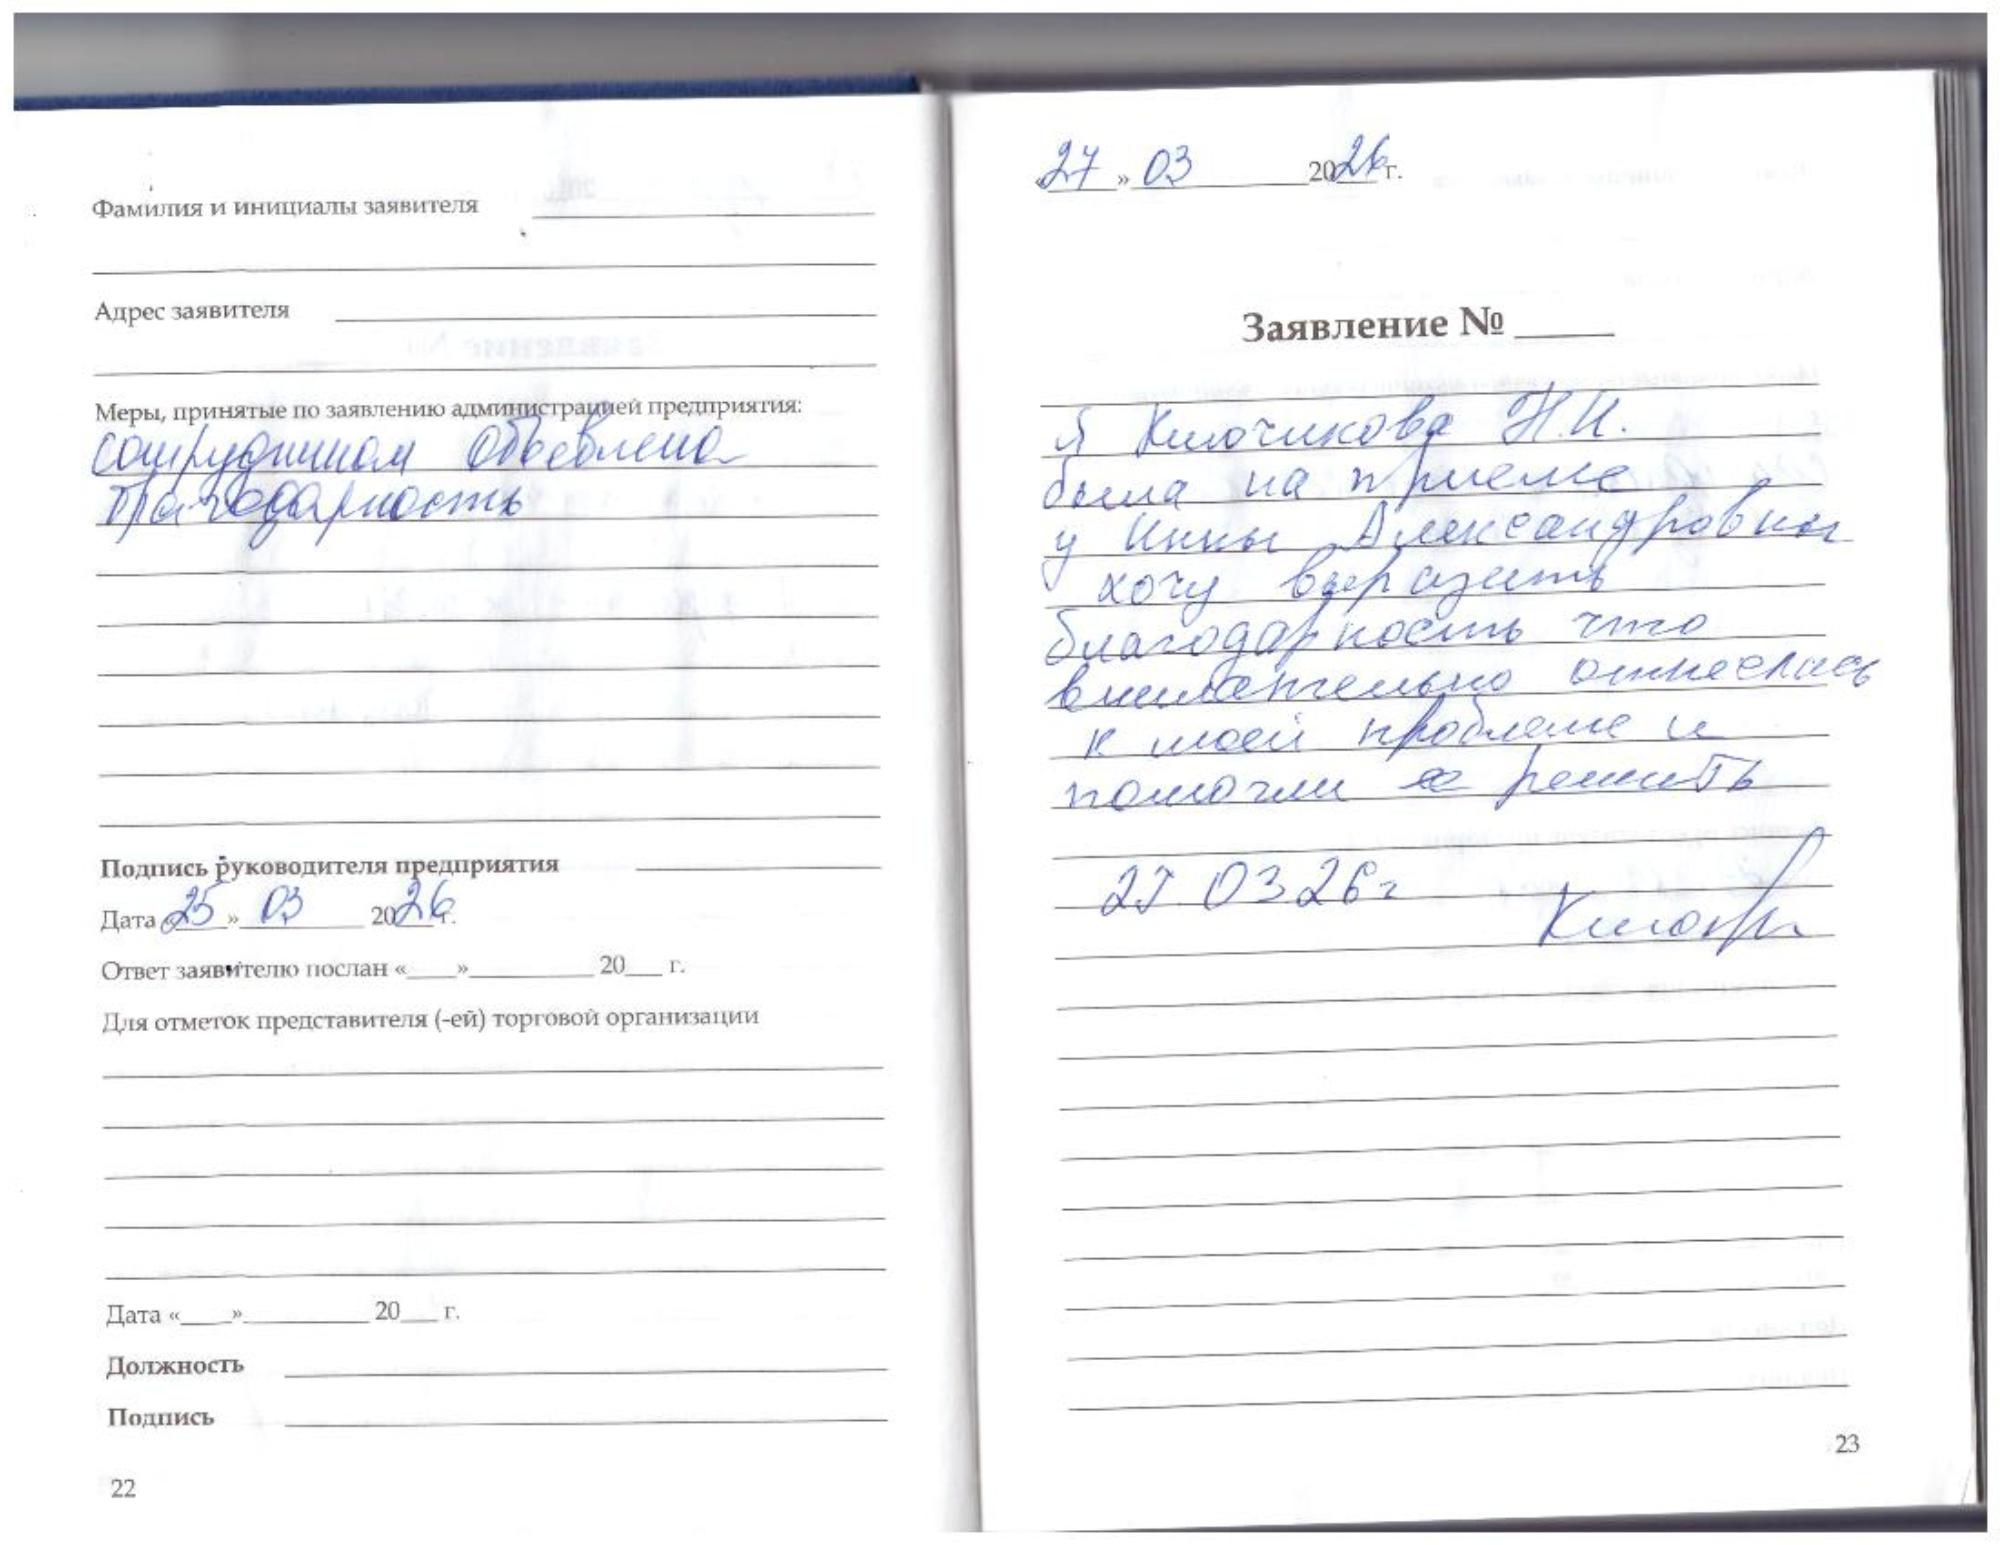 Фамилия и инициалы заявителя
Адрес заявителя
Меры, принятые по заявлению администрацией предприятия:
сотрудникам объевлена
благодарность
Подпись руководителя предприятия
Дата «25» 03 2026 г.
Ответ заявителю послан «____»__________ 20___ г.
Для отметок представителя (-ей) торговой организации
Дата «____»__________ 20___ г.
Должность
Подпись
22
«27» 03 2026 г.
Заявление № ______
Я Ключикова Н.И.
была на приеме
у Инны Александровны
хочу выразить
благодарность что
внимательно отнеслась
к моей проблеме и
помогли ее решить
27.03.26г
23